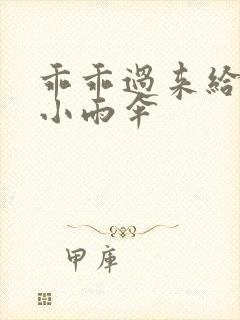 乖乖過来給
小雨伞
甲库